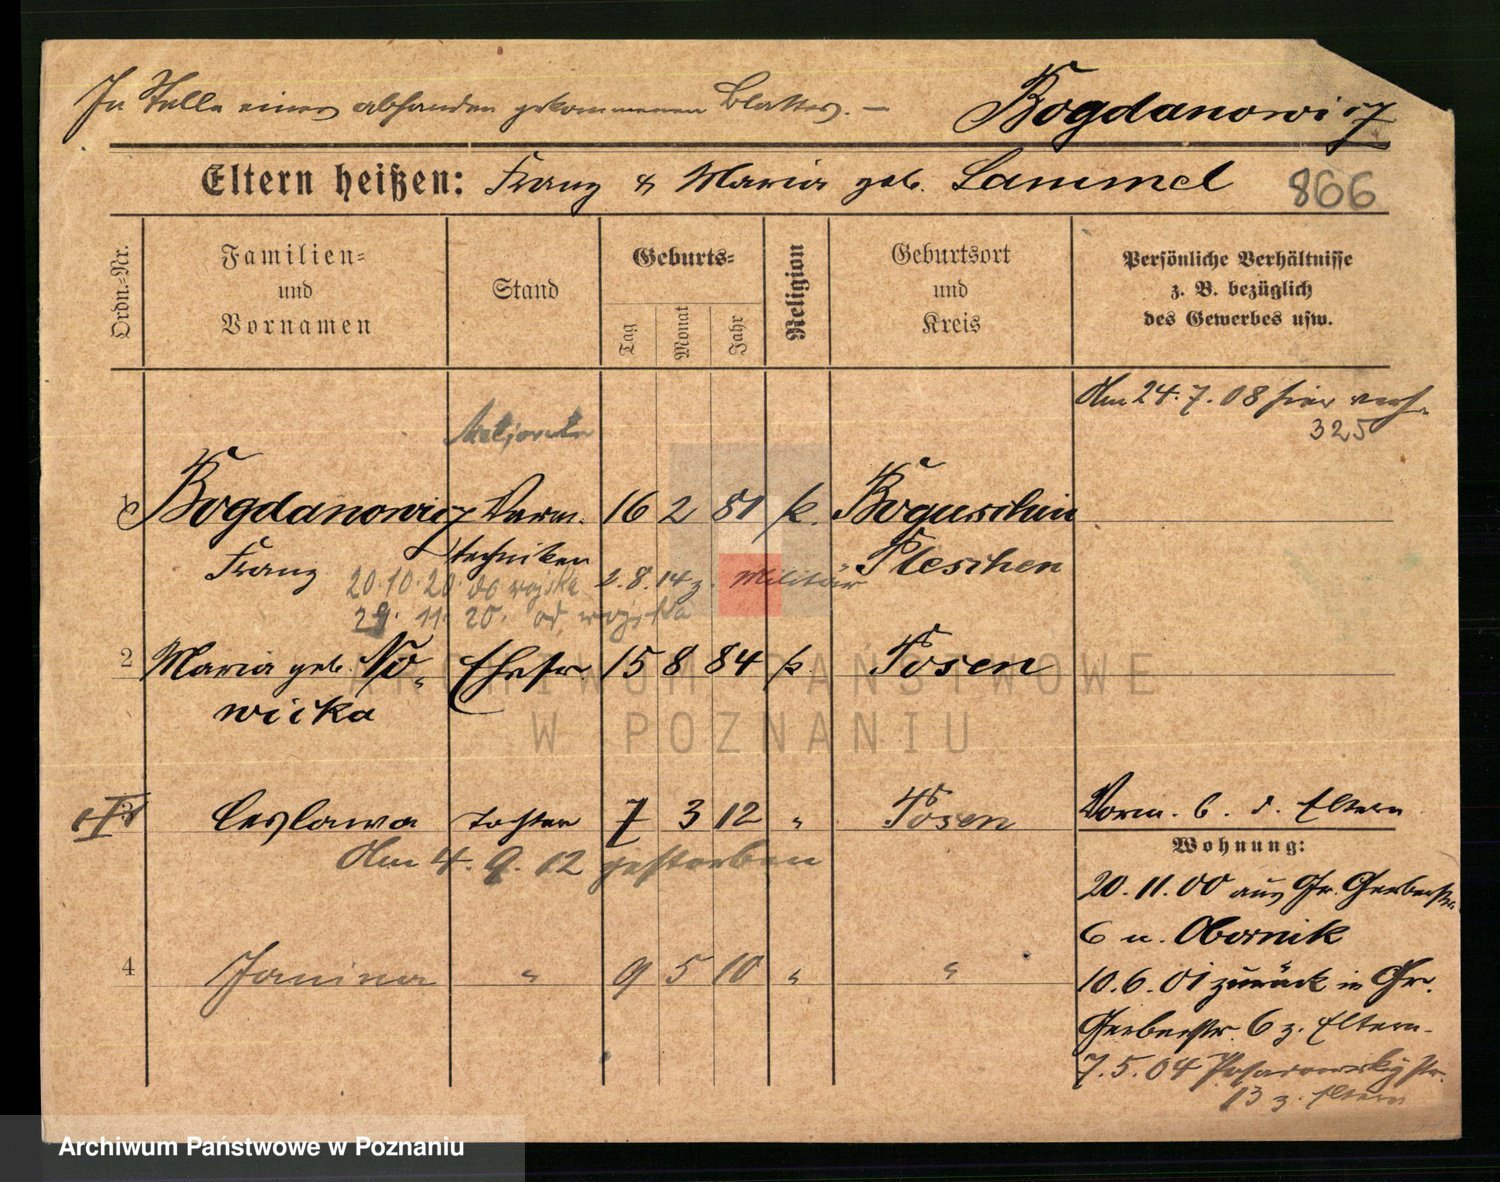 In Stelle eines abhanden gekommenen Blattes. —
Bogdanowicz
Eltern heißen: Franz & Maria geb. Lammel
866
Ordn.-Nr.
Familien-
und
Vornamen
Stand
Geburts-
Tag
Monat
Jahr
Religion
Geburtsort
und
Kreis
Persönliche Verhältnisse
z. B. bezüglich
des Gewerbes usw.
Am 24.7.08 hier verh.
325
1 Bogdanowicz Verm. 16 2 81 k. Boguschin
Franz techniker Pleschen
20.10.20 do wojska 2.8.14 z. Militär
29.11.20. od wojska
2 Maria geb. No- Ehefr. 15 8 84 k. Posen
wicka
3 Ceslawa Tochter 7 3 12 " Posen
Am 4.9.12 gestorben
Vorm. b. d. Eltern
Wohnung:
20.11.00 aus Gr. Gerberstr.
6 n. Obornik
10.6.01 zurück in Gr.
Gerberstr. 6 z. Eltern.
4 Janina " 9 5 10 " "
7.5.04
13 z. Eltern
ARCHIWUM PAŃSTWOWE
W POZNANIU
Archiwum Państwowe w Poznaniu